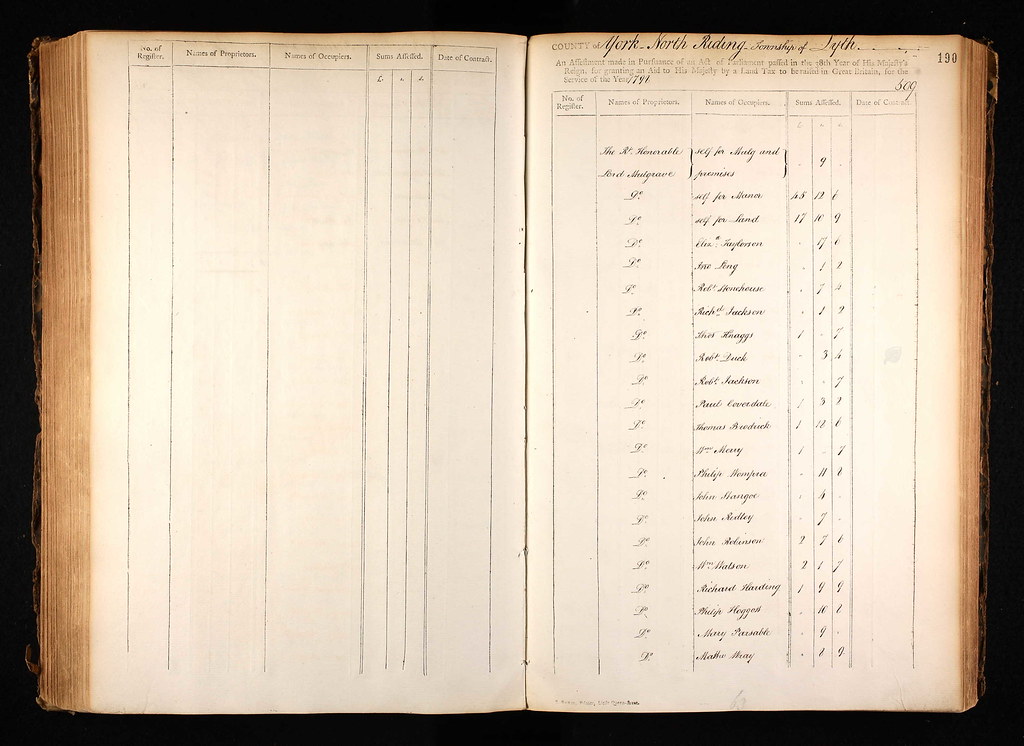 No. of Register. Names of Proprietors. Names of Occupiers. Sums Assessed. Date of Contract.
£. s. d.
COUNTY of York - North Riding - Township of Lyth.
190
An Assessment made in Pursuance of an Act of Parliament passed in the 38th Year of His Majesty's
Reign, for granting an Aid to His Majesty by a Land Tax to be raised in Great Britain, for the
Service of the Year 1798
509
No. of Register. Names of Proprietors. Names of Occupiers. Sums Assessed. Date of Contract.
£. s. d.
The Rt. Honorable self for Mulg and
Lord Mulgrave premises . 9 .
Do. self for Manor 48 12 6
Do. self for Land 17 10 9
Do. Elizth. Taylorson . 17 6
Do. Jno Leng . 1 2
Do. Robt. Stonehouse . 7
Do. Richd. Jackson . 1 2
Do. Thos Knaggs 1 - 7
Do. Robt. Duck . 3 4
Do. Robt. Jackson . . 7
Do. Paul Coverdale 1 3 2
Do. Thomas Brodrick 1 12 6
Do. Wm. Merry 1 - 7
Do. Philip 11
Do. John . 4 .
Do. John Ridley . 7 .
Do. John Robinson 2 7 6
Do. Wm. Watson 2 1 7
Do. Richard Harding 1 9 9
Do. Philip Hoggott . 10
Do. Mary Parsable . 9 .
Do. Matthw Wray . 1 9